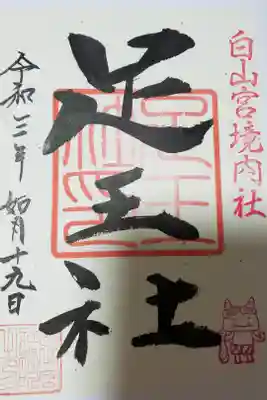 白山宮境内社
足王社
令和三年如月十九日